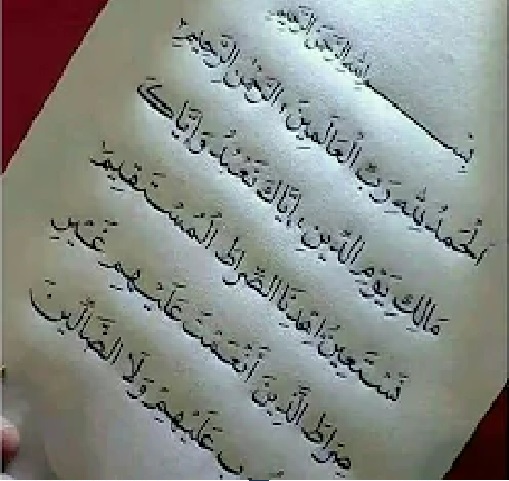 بِسْمِ اللهِ الرَّحْمٰنِ الرَّحِيْمِ
اَلْحَمْدُ لِلّٰهِ رَبِّ الْعَالَمِينَ ، الرَّحْمٰنِ الرَّحِيْمِ
مَالِكِ يَوْمِ الدِّينِ ، إِيَّاكَ نَعْبُدُ وَإِيَّاكَ
نَسْتَعِينُ اِهْدِنَا الصِّرَاطَ الْمُسْتَقِيمَ
صِرَاطَ الَّذِينَ أَنْعَمْتَ عَلَيْهِمْ غَيْرِ
عَلَيْهِمْ وَلَا الضَّالِّينَ